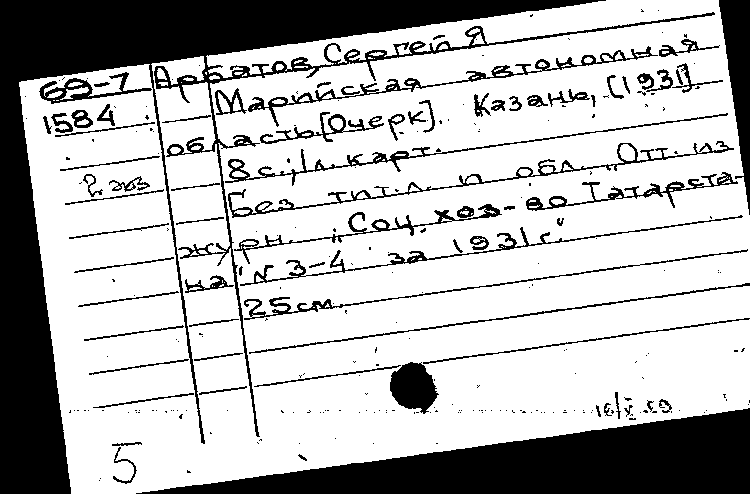 69-7 Арбатов, Сергей Я
1584 Марийская автономная
область. [Очерк]. Казань, [1931].
2 экз 8 с.; 1 л. карт.
Без тит. л. и обл. „Отт. из
журн. „Соц. хоз-во Татарста-
на" № 3-4 за 1931 г."
25 см.
16/X.69
5